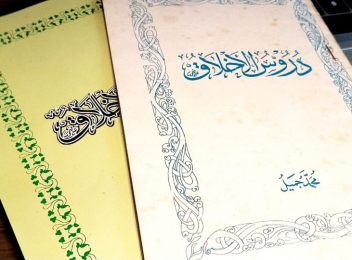 دروس الأخلاق
محمد جميل
الأخلاق